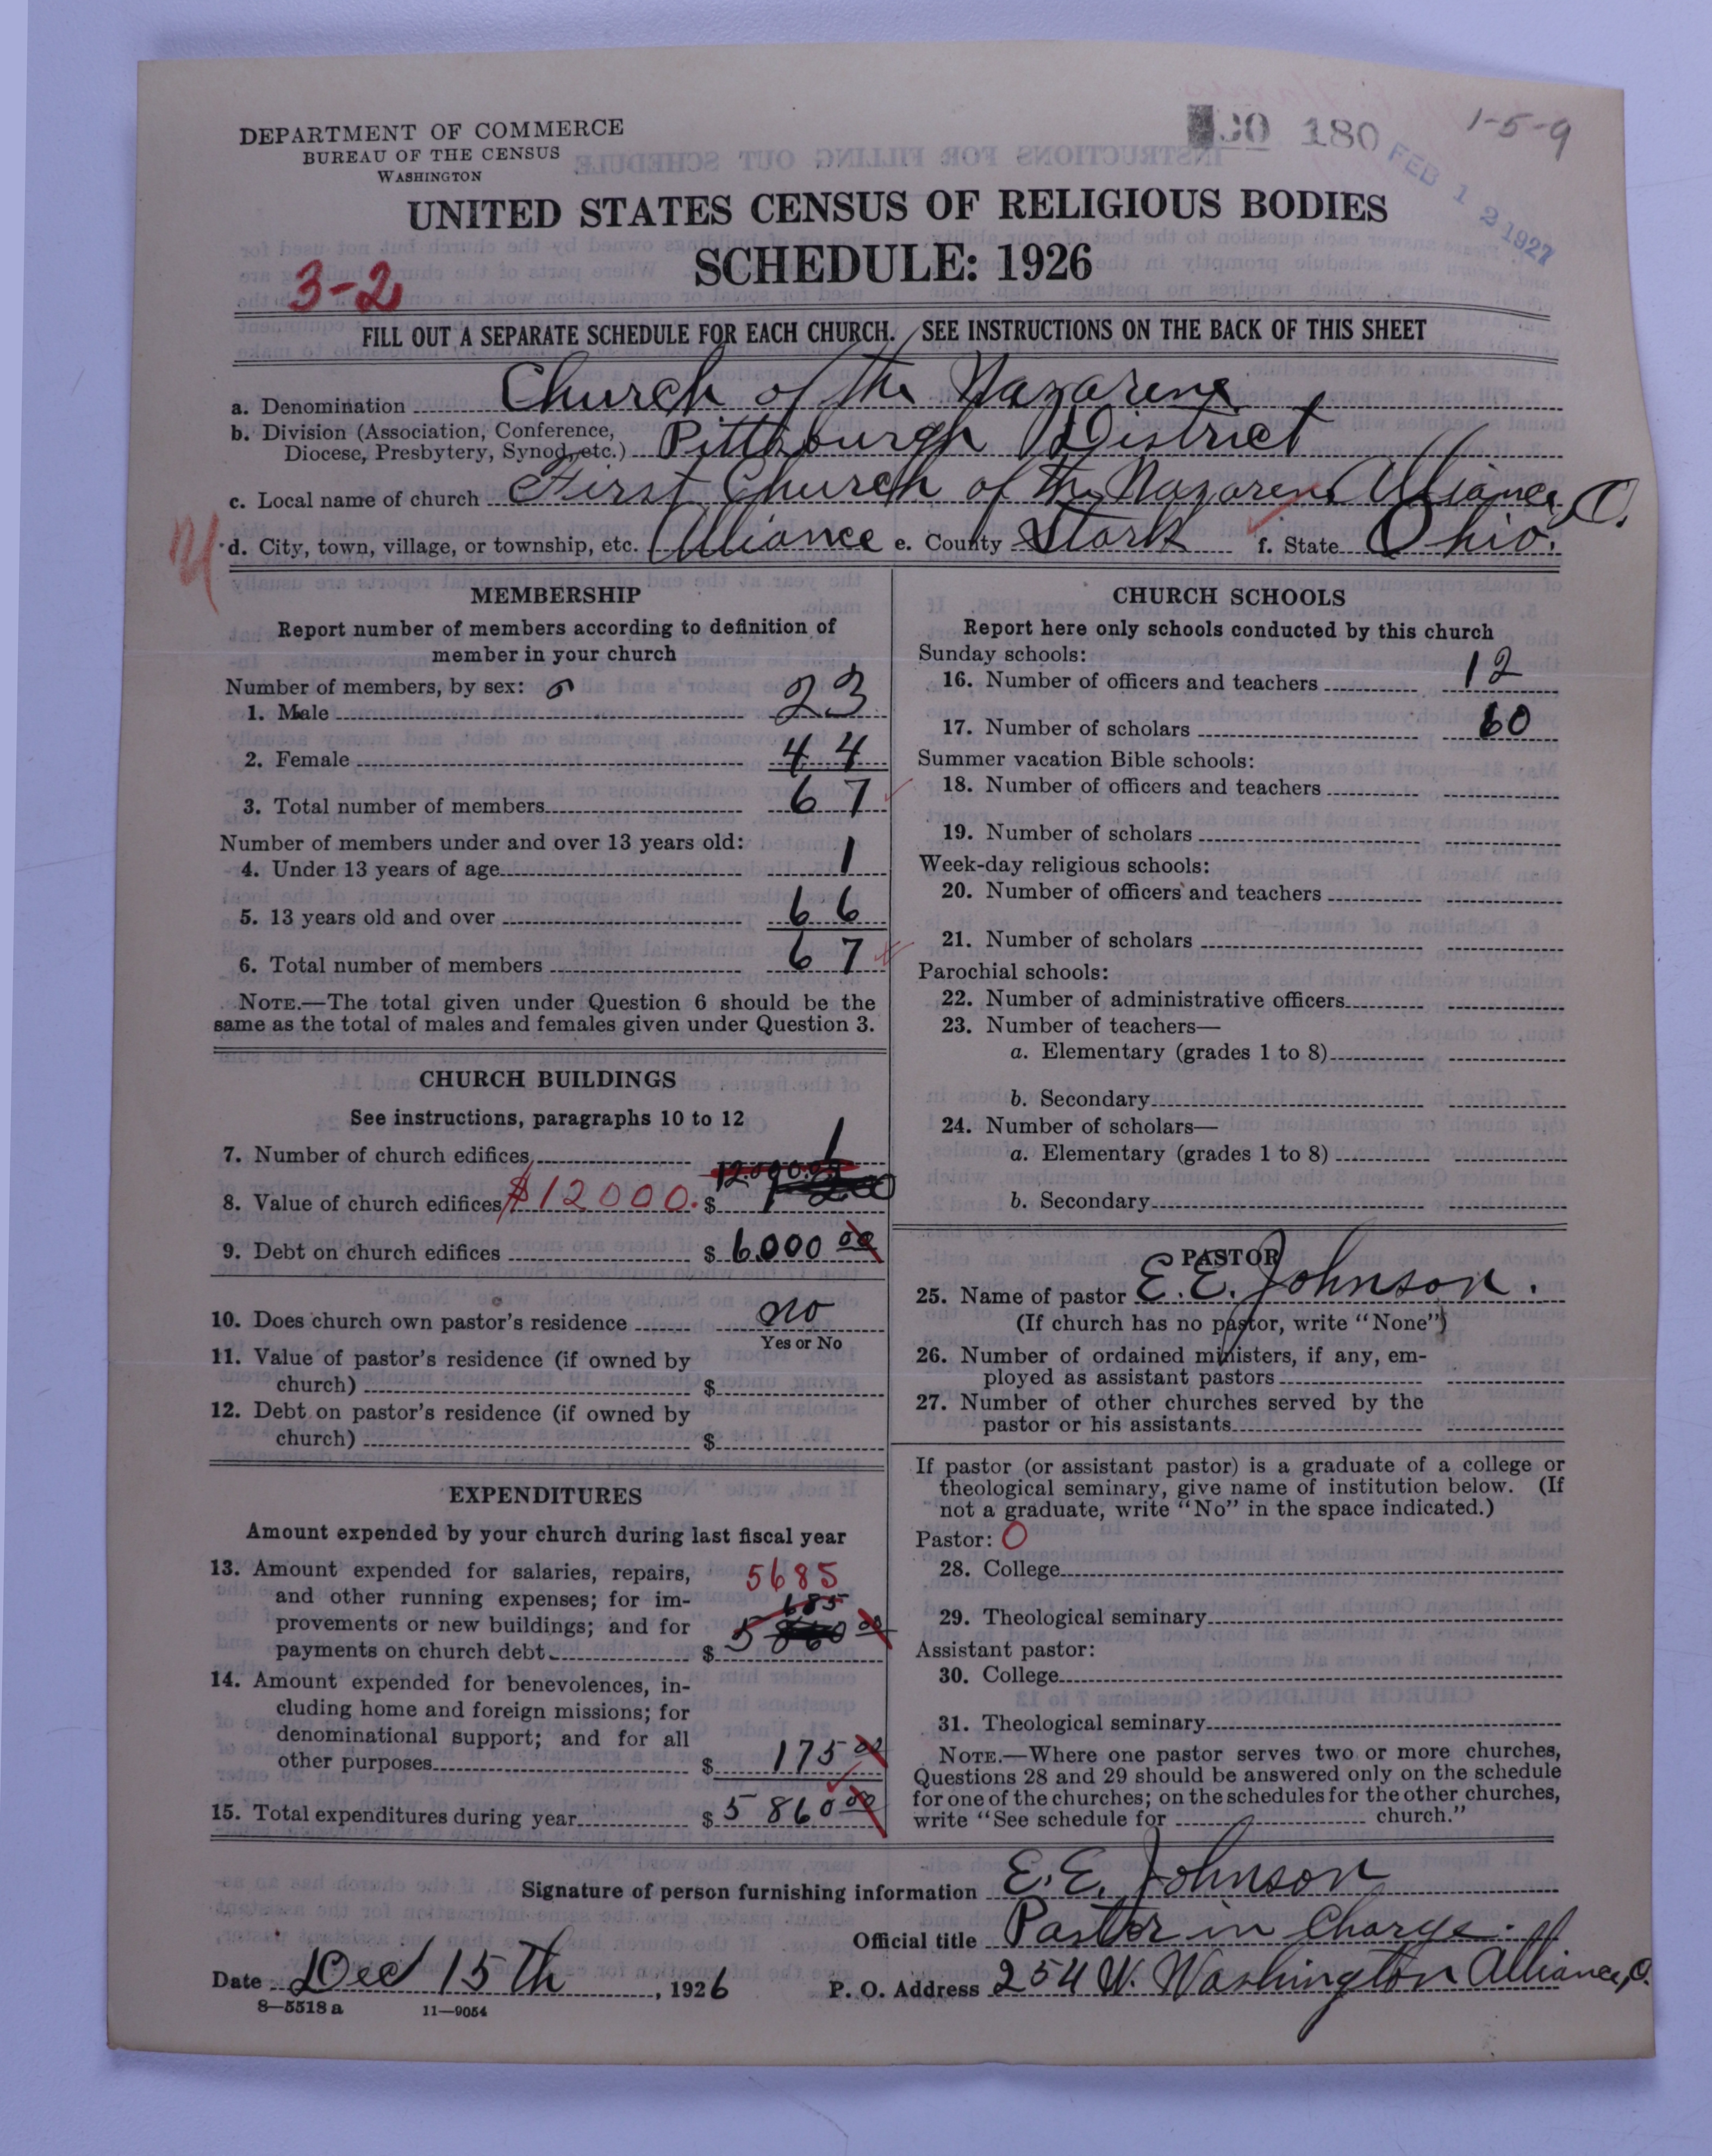 DEPARTMENT OF COMMERCE
BUREAU OF THE CENSUS
WASHINGTON
180
1-5-9
FEB 12 1927
UNITED STATES CENSUS OF RELIGIOUS BODIES
SCHEDULE: 1926
3-2
FILL OUT A SEPARATE SCHEDULE FOR EACH CHURCH. SEE INSTRUCTIONS ON THE BACK OF THIS SHEET
a. Denomination Church of the Nazarene
b. Division (Association, Conference, Diocese, Presbytery, Synod, etc.) Pittsburgh District
c. Local name of church First Church of the Nazarene Alliance, O.
d. City, town, village, or township, etc. Alliance e. County Stark f. State Ohio.
MEMBERSHIP
Report number of members according to definition of
member in your church
Number of members, by sex:
1. Male 23
2. Female 44
3. Total number of members 67
Number of members under and over 13 years old:
4. Under 13 years of age 1
5. 13 years old and over 66
6. Total number of members 67
NOTE.—The total given under Question 6 should be the
same as the total of males and females given under Question 3.
CHURCH BUILDINGS
See instructions, paragraphs 10 to 12
7. Number of church edifices 1
8. Value of church edifices $12000. $ 12.000.00
9. Debt on church edifices $ 6000 00
10. Does church own pastor's residence no
Yes or No
11. Value of pastor's residence (if owned by
church) $
12. Debt on pastor's residence (if owned by
church) $
EXPENDITURES
Amount expended by your church during last fiscal year
13. Amount expended for salaries, repairs, 5685
and other running expenses; for im- 685
provements or new buildings; and for
payments on church debt $ 5 860 00
14. Amount expended for benevolences, in-
cluding home and foreign missions; for
denominational support; and for all
other purposes $ 175 00
15. Total expenditures during year $ 5860 00
CHURCH SCHOOLS
Report here only schools conducted by this church
Sunday schools:
16. Number of officers and teachers 12
17. Number of scholars 60
Summer vacation Bible schools:
18. Number of officers and teachers
19. Number of scholars
Week-day religious schools:
20. Number of officers and teachers
21. Number of scholars
Parochial schools:
22. Number of administrative officers
23. Number of teachers—
a. Elementary (grades 1 to 8)
b. Secondary
24. Number of scholars—
a. Elementary (grades 1 to 8)
b. Secondary
PASTOR
25. Name of pastor E. E. Johnson.
(If church has no pastor, write "None")
26. Number of ordained ministers, if any, em-
ployed as assistant pastors
27. Number of other churches served by the
pastor or his assistants
If pastor (or assistant pastor) is a graduate of a college or
theological seminary, give name of institution below. (If
not a graduate, write "No" in the space indicated.)
Pastor: O
28. College
29. Theological seminary
Assistant pastor:
30. College
31. Theological seminary
NOTE.—Where one pastor serves two or more churches,
Questions 28 and 29 should be answered only on the schedule
for one of the churches; on the schedules for the other churches,
write "See schedule for church."
Signature of person furnishing information E. E. Johnson
Official title Pastor in Charge.
Date Dec 15th, 1926 P. O. Address 254 W. Washington Alliance, O.
8—5518 a 11—9054